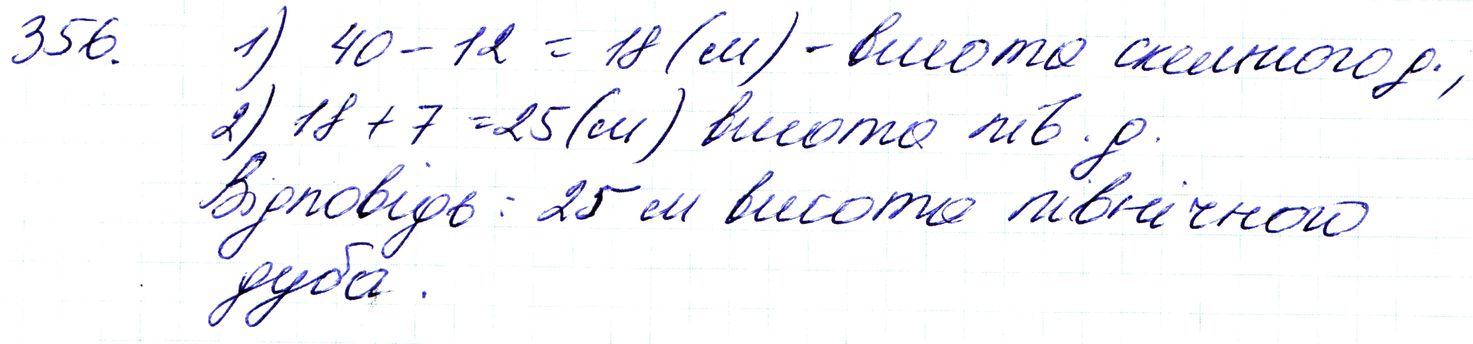 356. 1) 40 - 12 = 18 (м) - висота скельного д.,
2) 18 + 7 = 25 (м) висота півн. д.
Відповідь: 25 м висота північного
дуба.